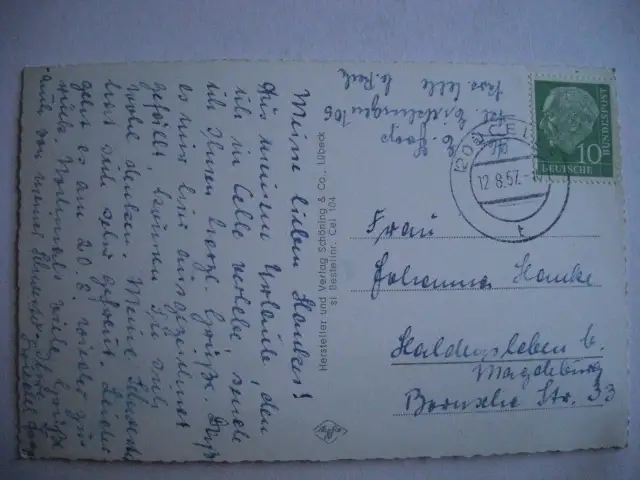 Meine lieben Hankes!
Aus meinem Urlaub, den
ich in Celle verlebe, sende
ich Ihnen herzl. Grüße. Daß
es mir hier ausgezeichnet
gefällt, können Sie sich
wohl denken. Meine Schwester
hat sich sehr gefreut. Leider
geht es am 20.8. wieder zu-
rück. Nochmals viele Grüße
auch von meiner Schwester Ihre
Hersteller und Verlag Schöning & Co., Lübeck
Bestellnr. Cel 104
105
Celle
12.8.57
10
DEUTSCHE
BUNDESPOST
Frau
Johanna Hanke
Haldensleben b.
Magdeburg
Bornsche Str. 33